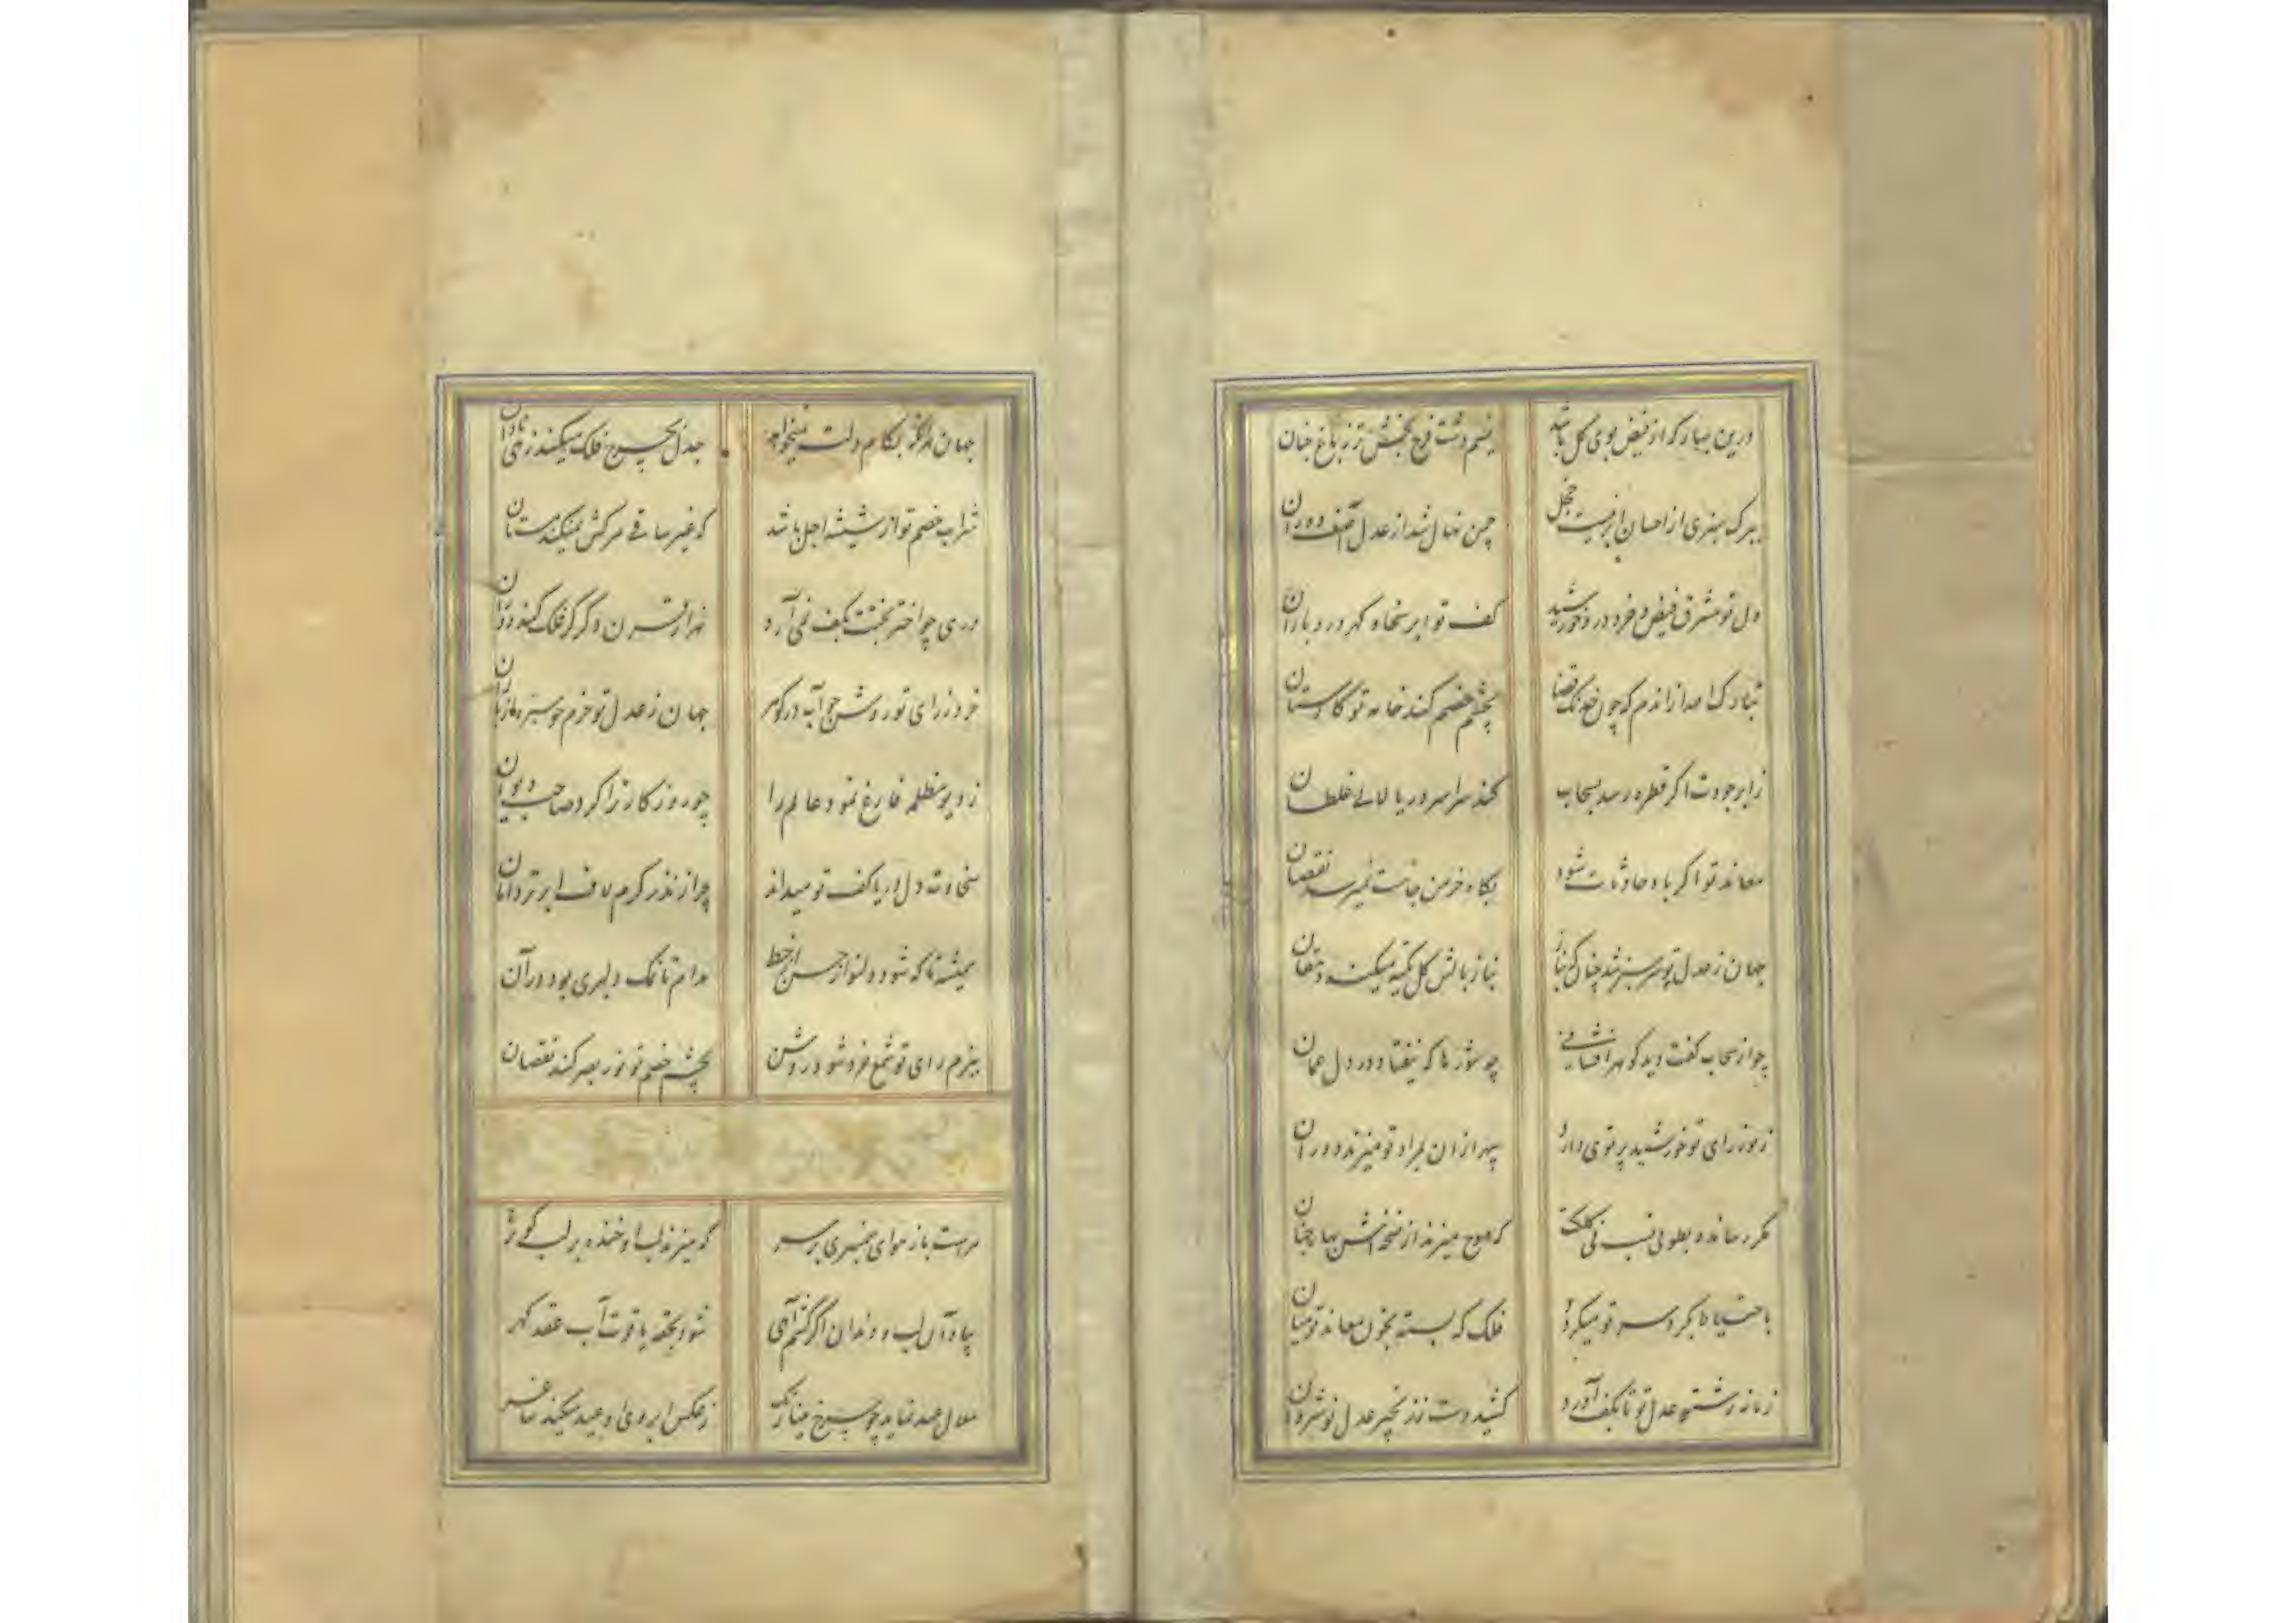 درین بهار که از فیض بوی گل باشد
نسیم دشت فرح بخش تر ز باغ جنان
ببرک سبزی از احسان ابر نیست خجل
چمن نهال شد از عدل آصف دوران
دل تو مشرق فیض و خرد درو خورشید
کف تو ابر سخا و گهر درو باران
بچشم خصم کند خانه تو کارستان
ز ابر جودت اگر قطره رسد بسحاب
کند سراسر دریا لآلی غلطان
معاند تو اگر باد حادثات شود
بکاه خرمن جاهت نمیرسد نقصان
جهان ز عدل تو سرسبز شد چنان که بناز
نیاز بالش گل تکیه میکند دهقان
چو از سحاب کفت دید گوهر افشانی
چه شورها که نیفتاد در دل عمان
ز نور رای تو خورشید پرتوی دارد
سپهر از ان بمراد تو میزند دوران
مگر رسانده بطوبی نسب نی کلکت
که موج میزند از نسخه‌اش بهار جنان
باحتیاط بکرد سر تو میگردد
فلک که بسته بخون معاند تو میان
زمانه رشته عدل تو تا بکف آورد
کشید دست ز زنجیر عدل نوشروان
جهان مگو بکام دلت نمیخواهد
جدل بچرخ فلک میکند ز نادانی
شراب خصم تو از شیشه اجل باشد
که غیر ساقی مرگش نمیکند مستان
دری چو اختر بختت بکف نمی آرد
هزار قرن دگر گر فلک کند دوران
خرد ز رای تو روشن چو آب در گوهر
جهان ز عدل تو خرم چو سبزه از باران
ز دیو مظلمه فارغ نمود عالم را
چو روزگار ترا کرد صاحب دیوان
سخاوت دل دریا کف تو میداند
چرا زند ز کرم لاف ابر تر دامان
همیشه تا که شود دلنواز حسن از خط
مدام تا نمک دلبری بود در آن
ببزم رای تو شمع خرد شود روشن
بچشم خصم تو نور بصر کند نقصان
مراست باز هوای سمنبری بر سر
که میزند لب او خنده بر لب کوثر
بیاد آن لب و دندان اگر کشم آهی
شود بحقه یاقوت آب عقد گهر
هلال عید نماید چو چرخ مینا رنگ
ز عکس ابروی او عید میکند ساغر